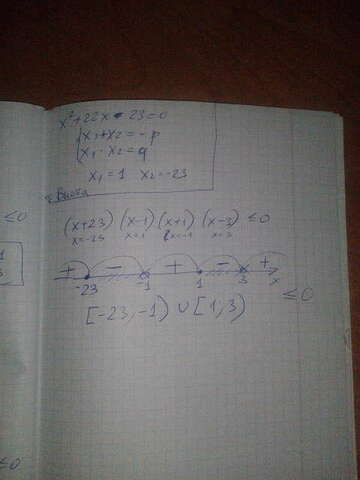 x²+22x-23=0
{x₁+x₂=-p
x₁-x₂=q
x₁=1 x₂=-23
т. Виета
≤0
(x+23)(x-1)(x+1)(x-3)≤0
x=-23 x=1 x=-1 x=3
+ - + - +
-23 -1 1 3 x
≤0
[-23;-1)∪[1;3)
≤0